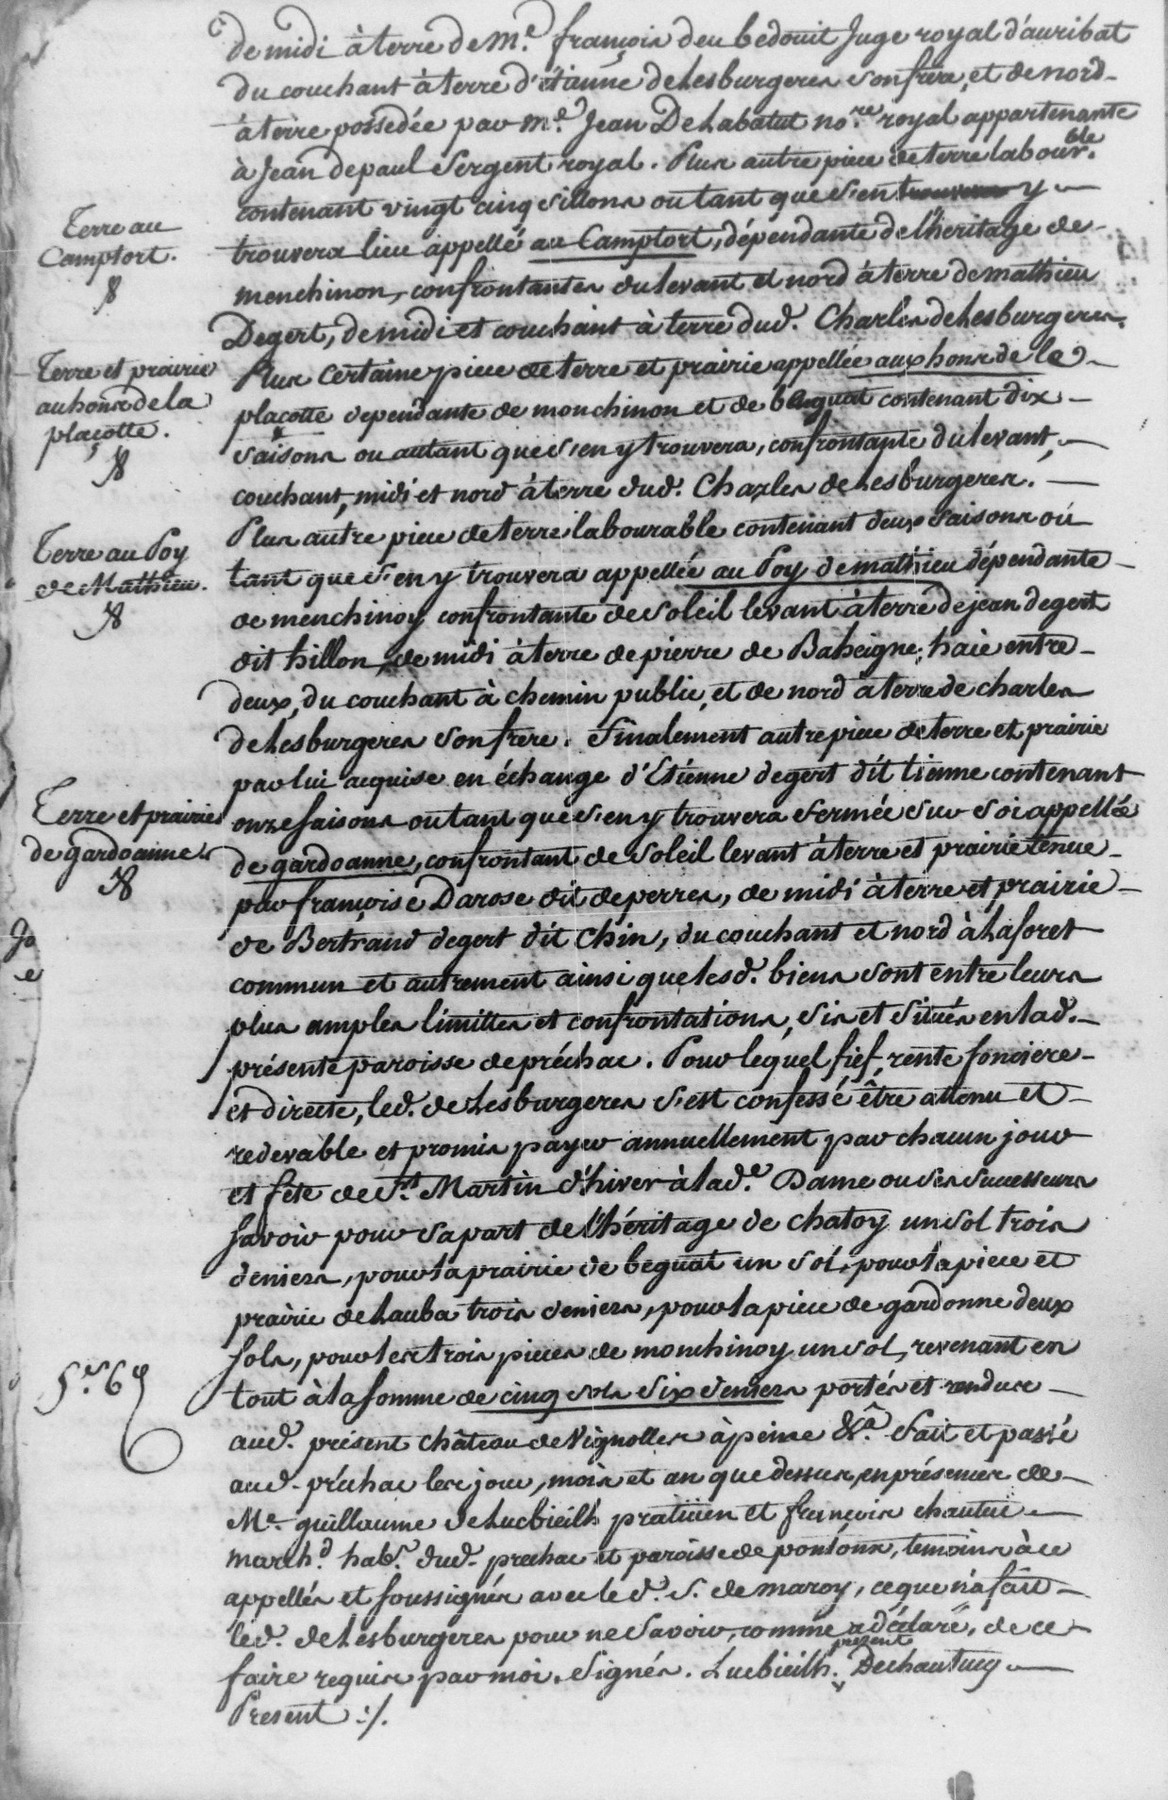 de midi à terre de Me. françois deu bedouit Juge royal d'auribat
du couchant à terre d'étienne de Lesburgeres son frere, et de nord
à terre possedée par me. Jean De Labatut nore. royal appartenante
à Jean depaul Sergent royal. Plus autre piece de terre labourble.
contenant vingt cinq sillons ou tant que s'en y
Terre au
Camptort.
trouvera lieu appellé au Camptort, dépendante de l'heritage de
menchinon, confrontantes du levant et nord à terre de mathieu
Degert, de midi et couchant à terre dud. Charles de Lesburgeres.
Terre et prairie
au hons de la
plaçotte.
Plus certaine piece de terre et prairie appellée aux hons de la
plaçotte dependante de monchinon et de beguat contenant dix
saisons ou autant que s'en y trouvera, confrontante du levant,
couchant, midi et nord à terre dud. Charles de Lesburgeres.
Terre au Poy
de Mathieu.
Plus autre piece de terre labourable contenant deux saisons ou
tant que s'en y trouvera appellée au Poy de mathieu dépendante
de menchinoy confrontante de soleil levant à terre de jean degert
dit hillon, de midi à terre de pierre de Baheigne, haie entre
deux, du couchant à chemin public, et de nord à terre de charles
de Lesburgeres son frere. Finalement autre piece de terre et prairie
par lui acquise en échange d'Etienne degert dit tienne contenant
Terre et prairies
de gardoanne
onze saisons ou tant que s'en y trouvera fermée sur soi appellée
de gardoanne, confrontant de soleil levant à terre et prairie tenue
par françoise Darose dit de perres, de midi à terre et prairie
de Bertrand degert dit Chin, du couchant et nord à La foret
commun et autrement ainsi que lesd. biens sont entre leurs
plus amples limittes et confrontations, sis et situés en lad.
présente paroisse de préchac. Pour lequel fief, rente fonciere
et directe, led. de Lesburgeres s'est confessé être attenu et
redevable et promis payer annuellement par chacun jour
et fête de St. Martin d'hiver à lade. Dame ou ses successeurs
savoir pour sa part de l'héritage de chatoy un sol trois
deniers, pour la prairie de beguat un sol, pour la piece et
prairie de Lauba trois deniers, pour la piece de gardonne deux
sols, pour les trois pieces de monchinoy un sol, revenant en
5s. 6d
tout à la somme de cinq sols six deniers portés et rendus
aud. présent château de Vignolles à peine &a. Fait et passé
aud. préchac les jour, mois et an que dessus, en présences de
Me. guillaume de Lucbieilh praticien et françois chautuc
marchd. habt. dud. prechac et paroisse de pontons, temoins à ce
appellés et soussignés avec led. s. de maroy, ce que n'a fait
led. de Lesburgeres pour ne savoir, comme a déclaré, de ce
faire requis par moi. Signés. Lucbieilh present, Dechautucq
Present :/.